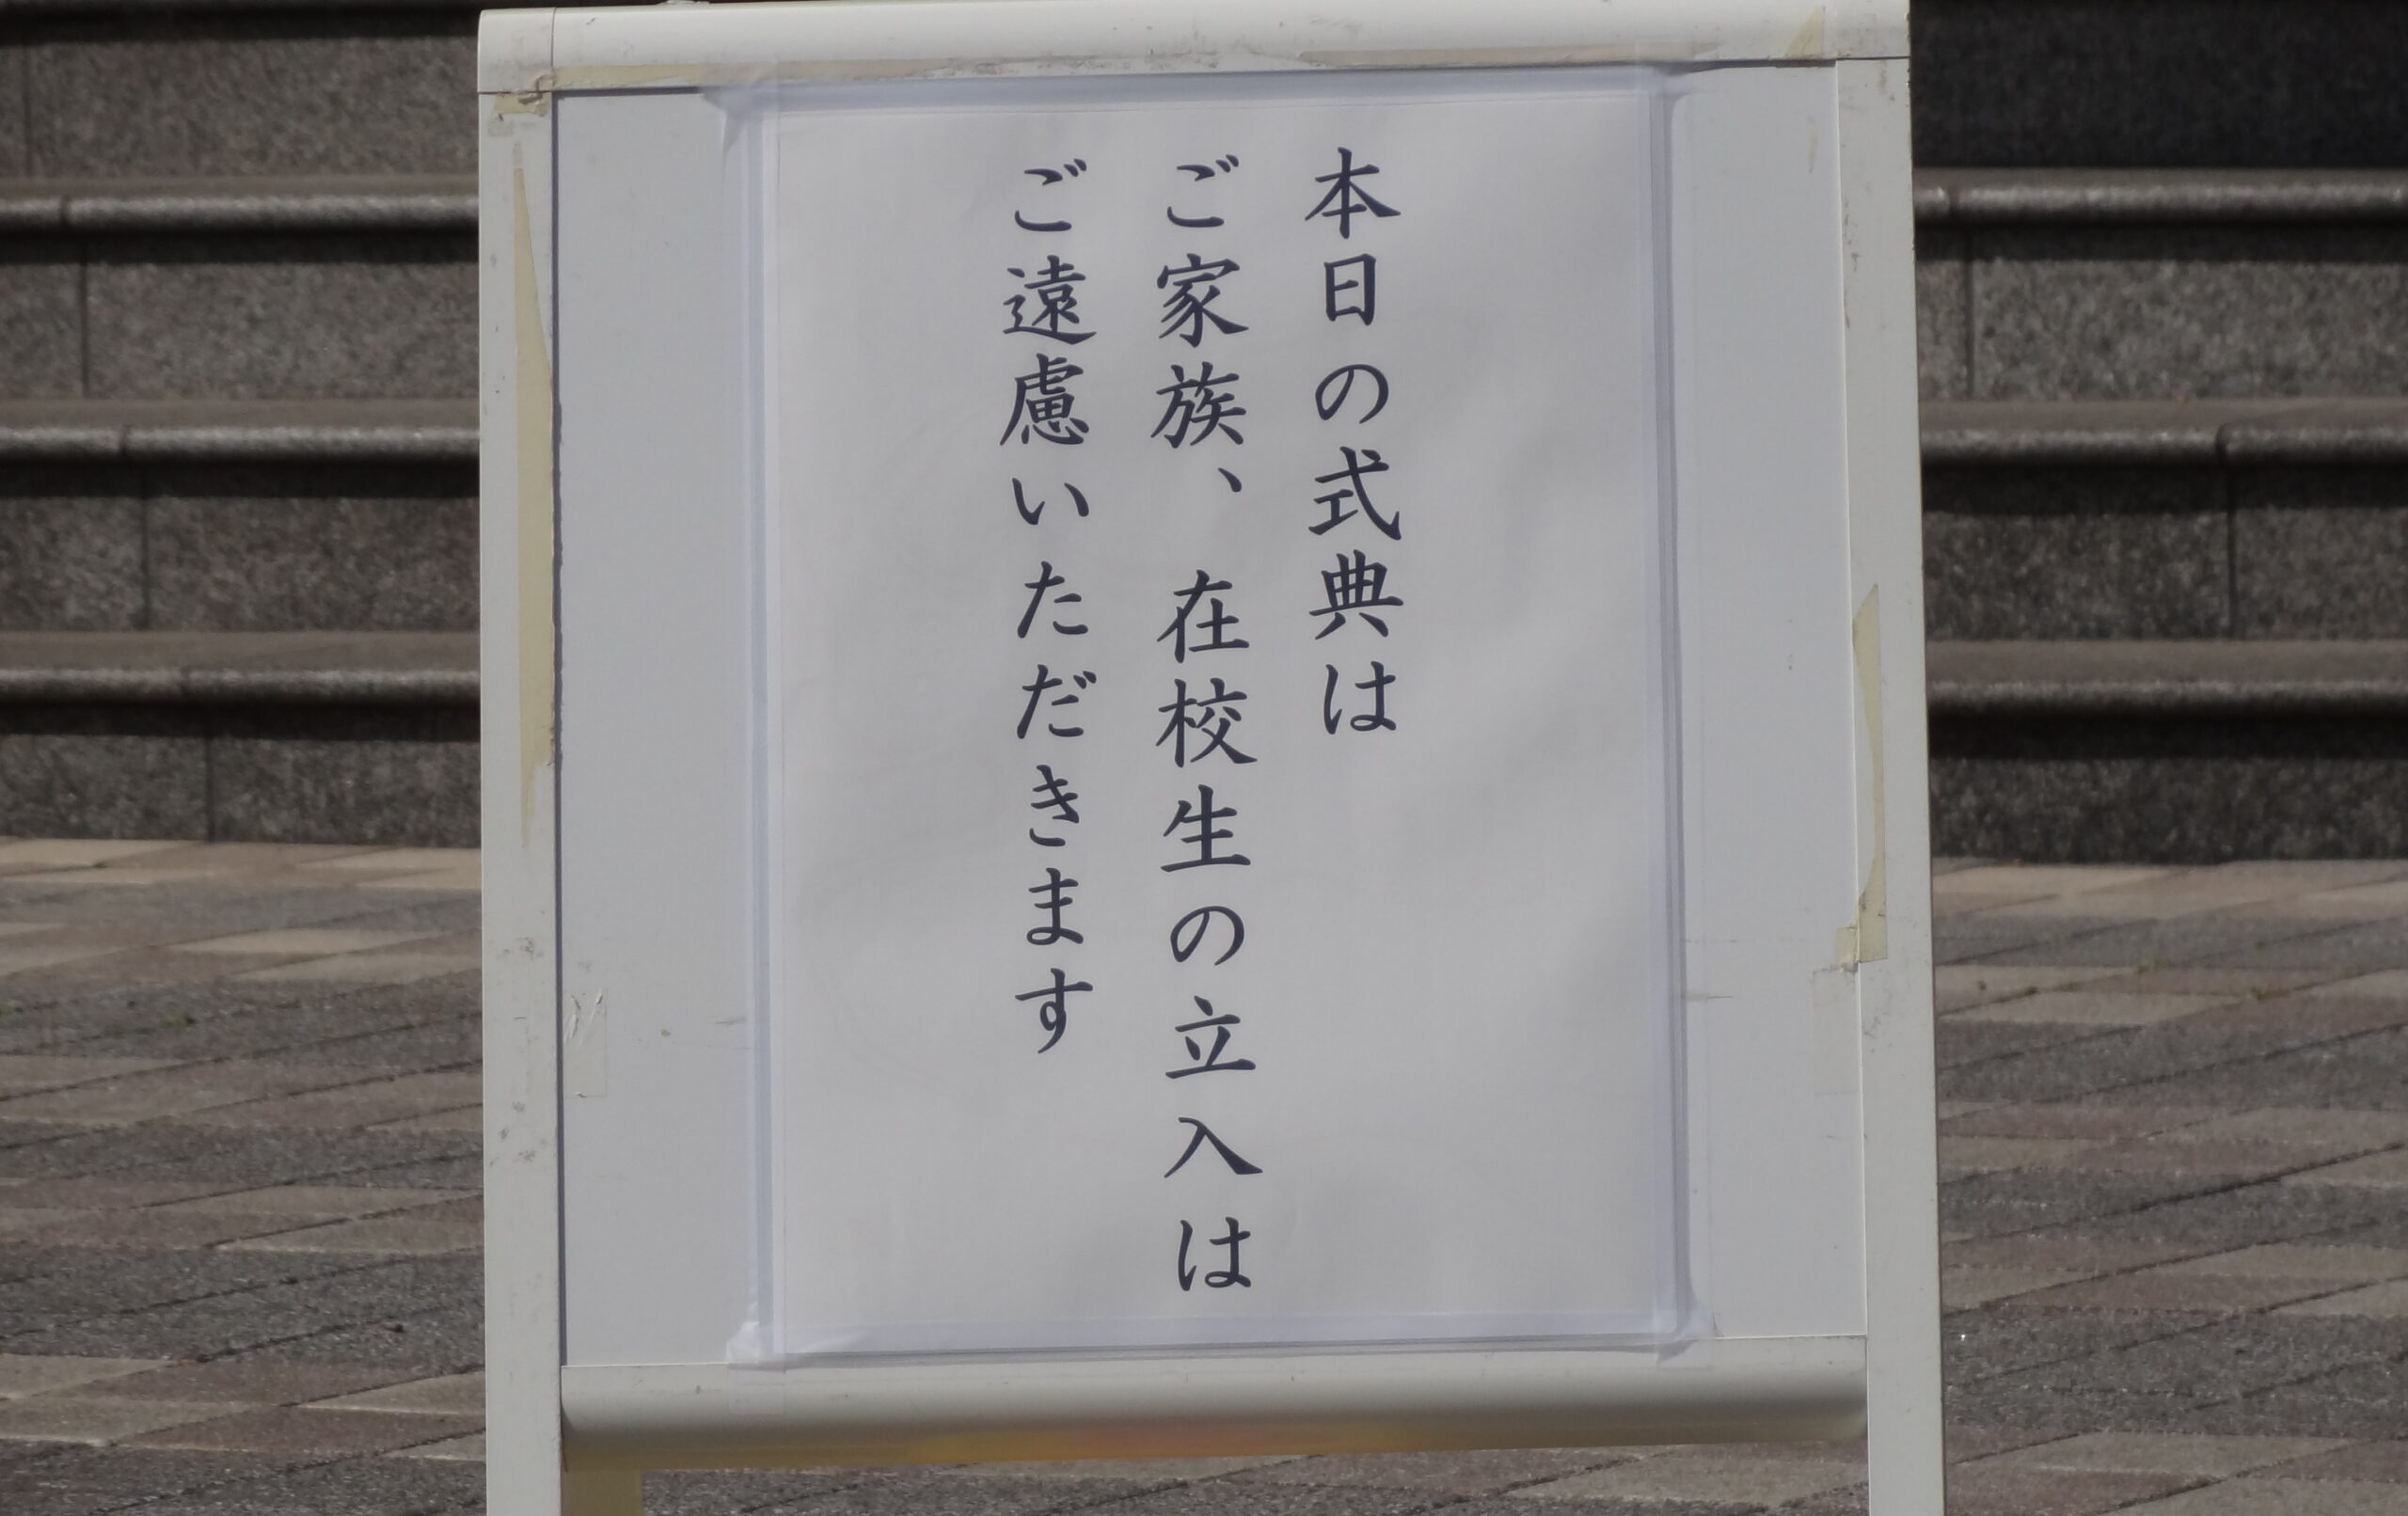 本日の式典は
ご家族、在校生の立入は
ご遠慮いただきます